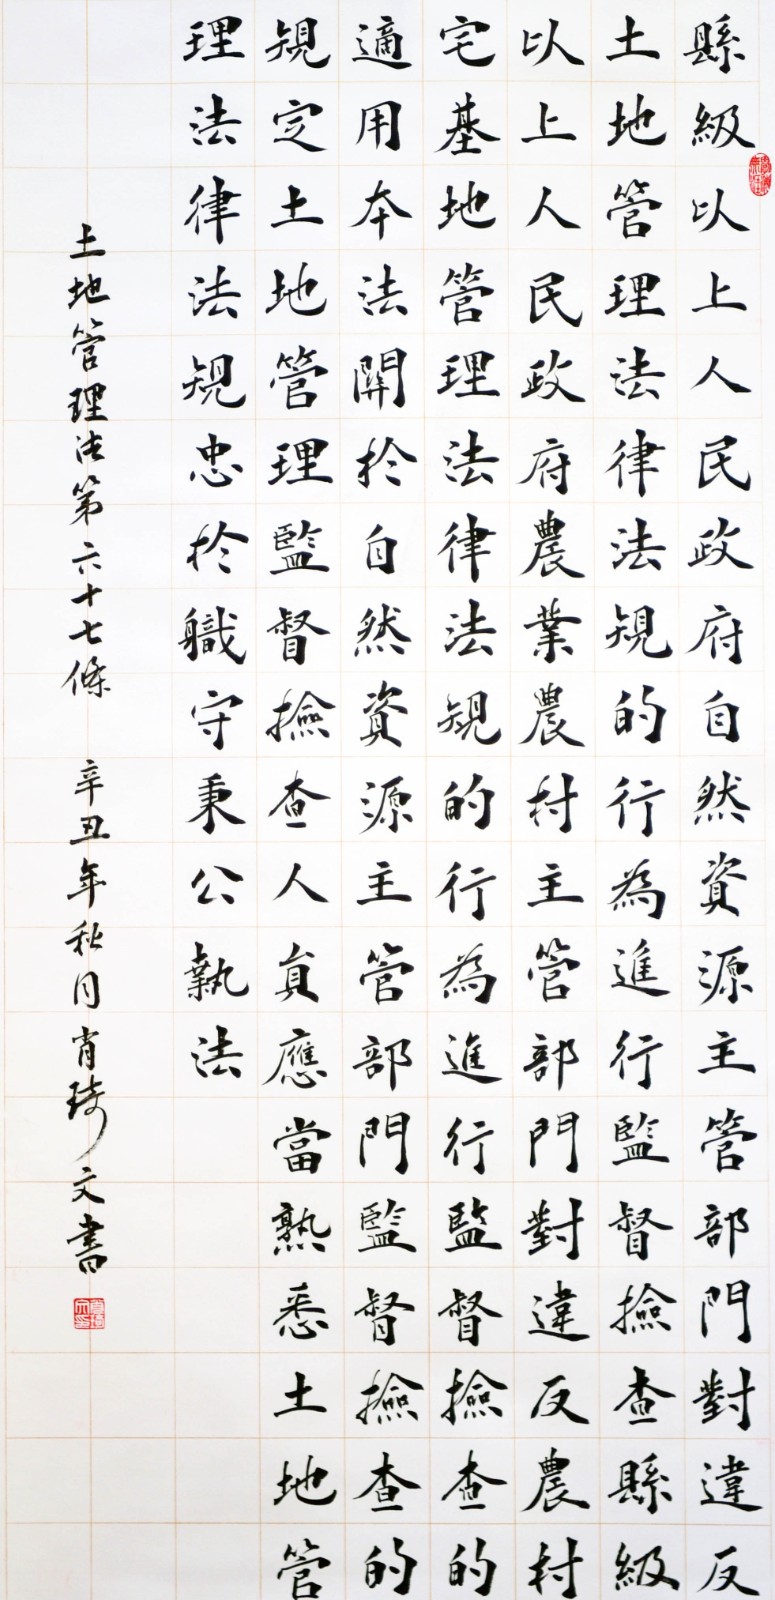 縣級以上人民政府自然資源主管部門對違反
土地管理法律法規的行為進行監督撿查縣級
以上人民政府農業農村主管部門對違反農村
宅基地管理法律法規的行為進行監督撿查的
適用本法關於自然資源主管部門監督撿查的
規定土地管理監督撿查人員應當熟悉土地管
理法律法規忠於職守秉公執法
土地管理法第六十七條 辛丑年秋月肖琦文書